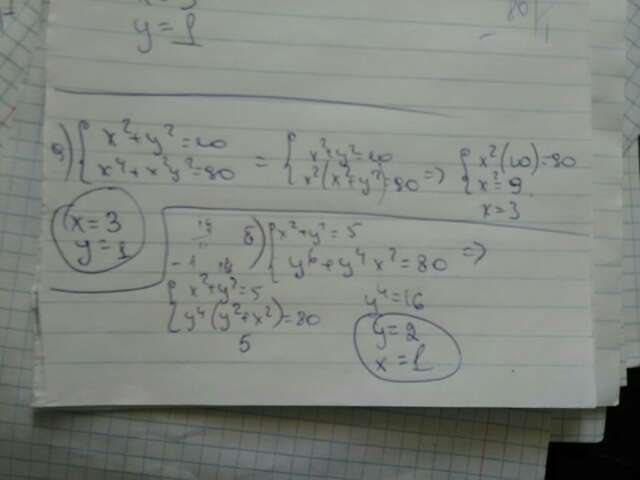 y=1
80
a) { x²+y²=10
x⁴+x²y²=80
= { x²+y²=10
x²(x²+y²)=80 =>
{ x²(10)=80
x²=9
x=3
x=3
y=1
б) { x²+y²=5
y⁶+y⁴x²=80 =>
{ x²+y²=5
y⁴(y²+x²)=80
5
y⁴=16
y=2
x=1